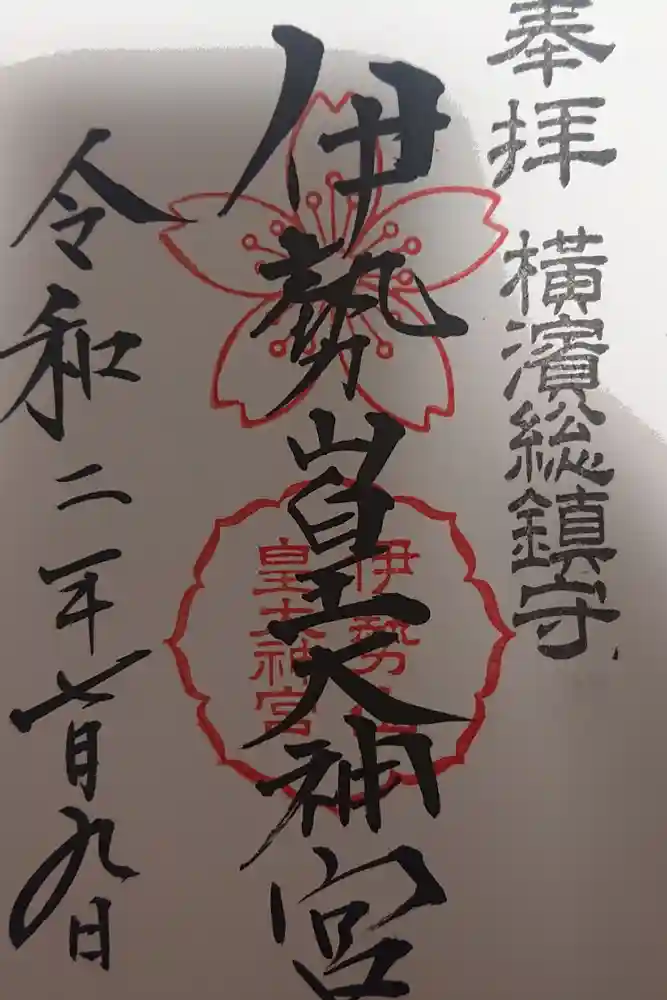 奉拝
横濱総鎮守
伊勢山皇大神宮
伊勢山
皇大神宮
令和二年七月九日